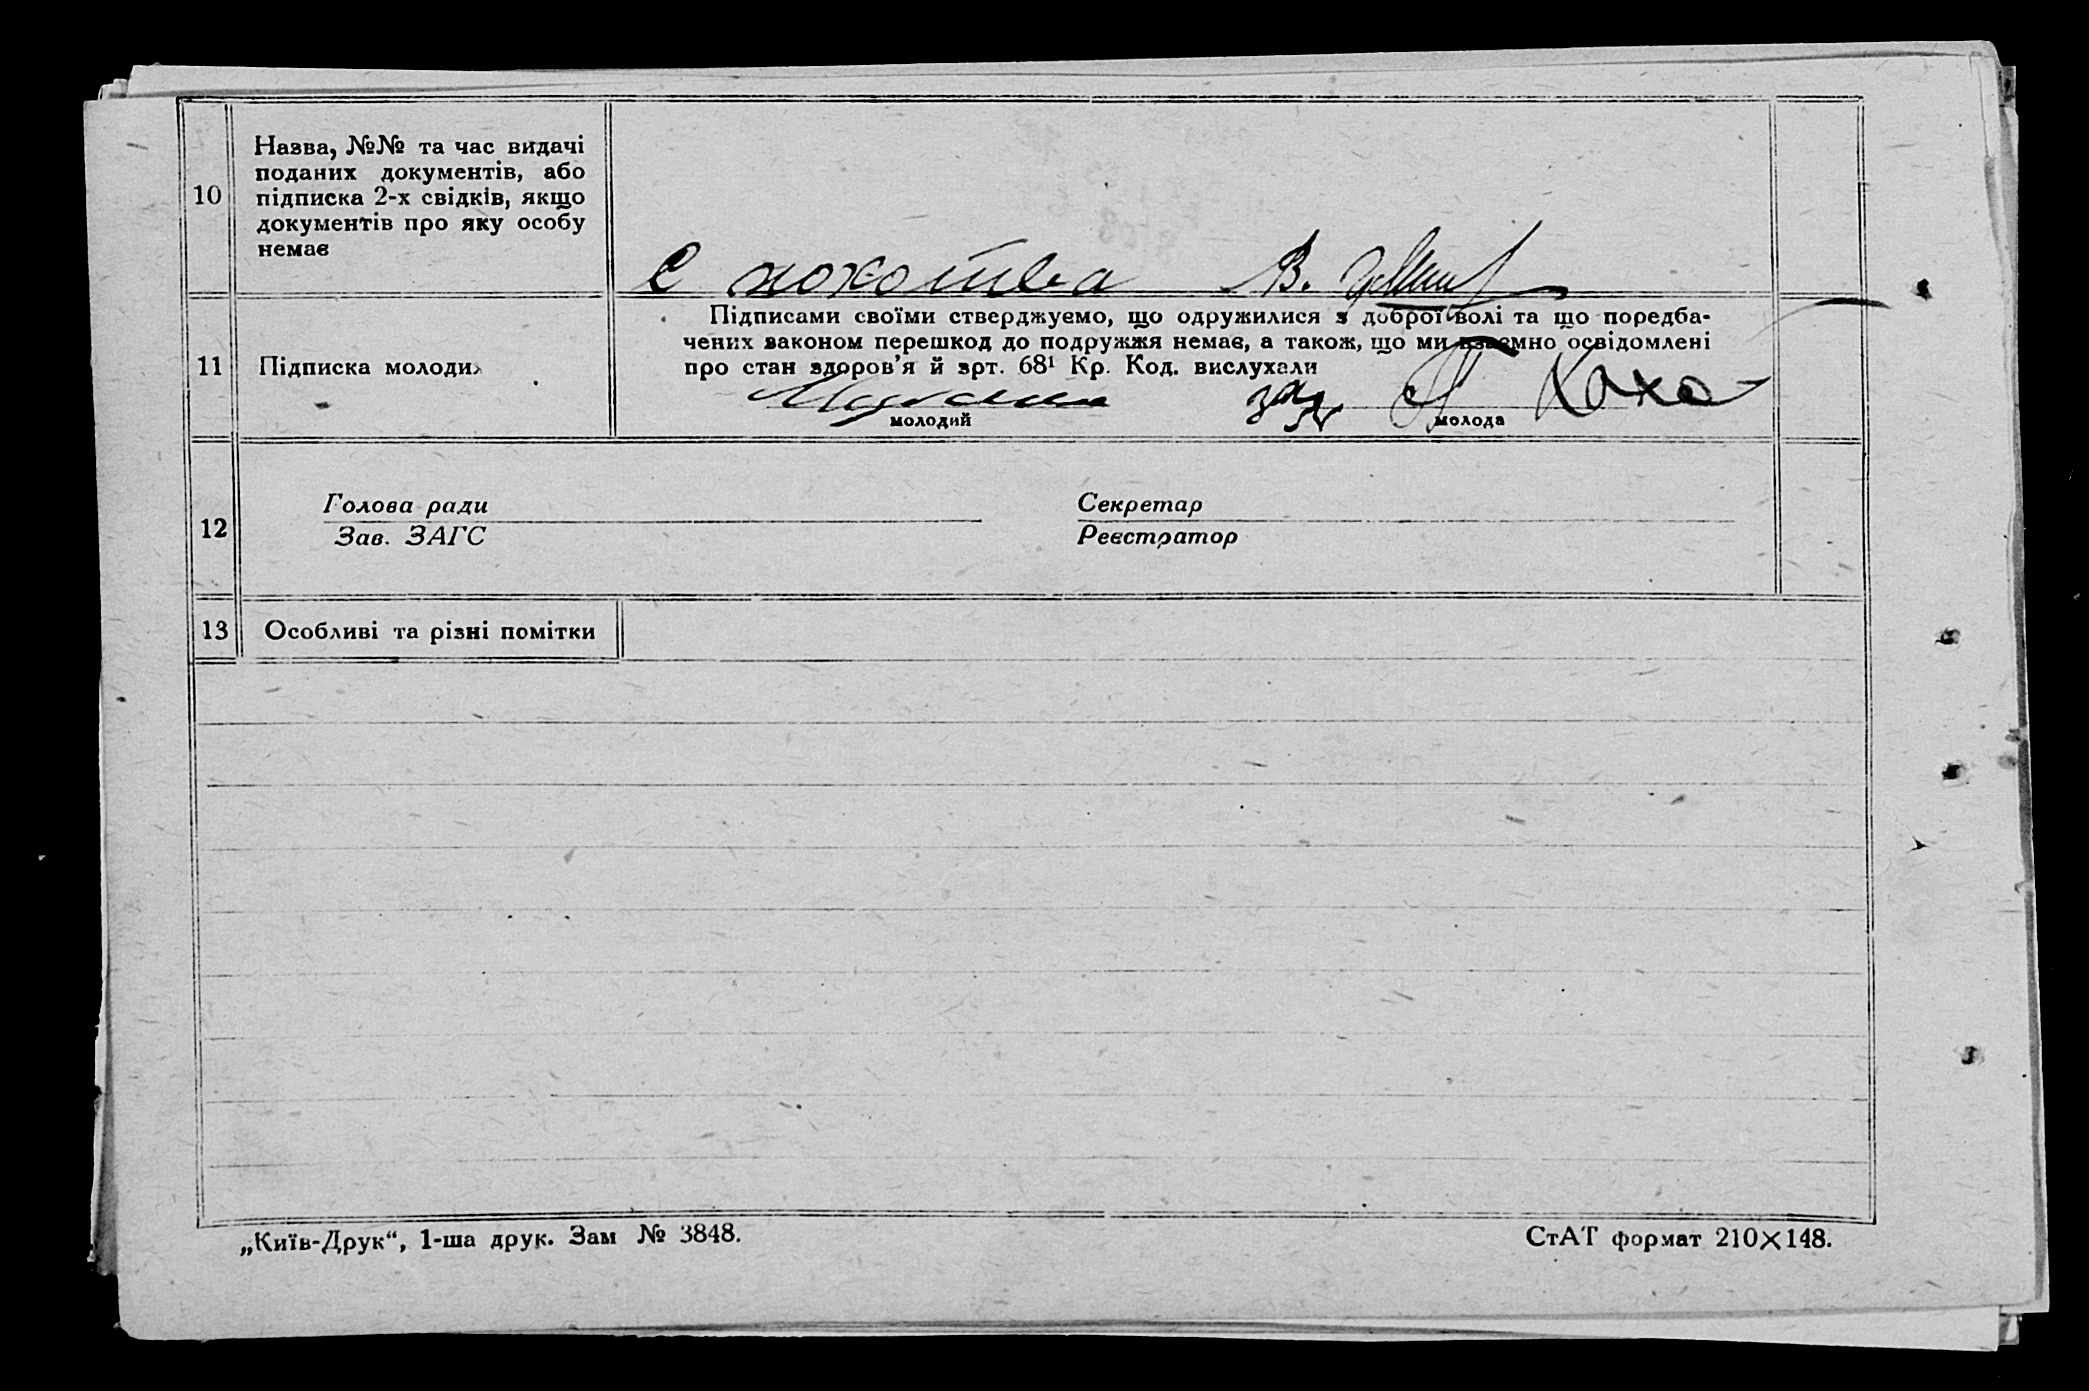 10
Назва, №№ та час видачі
поданих документів, або
підписка 2-х свідків, якщо
документів про яку особу
немає
В.
11
Підписка молодих
Підписами своїми стверджуємо, що одружилися з доброї волі та що поредба-
чених законом перешкод до подружжя немає, а також, що ми взаємно освідомлені
про стан здоров'я й арт. 68¹ Кр. Код. вислухали
молодий
молода
12
Голова ради
Зав. ЗАГС
Секретар
Реєстратор
13
Особливі та різні помітки
„Київ-Друк“, 1-ша друк. Зам № 3848.
СтАТ формат 210×148.